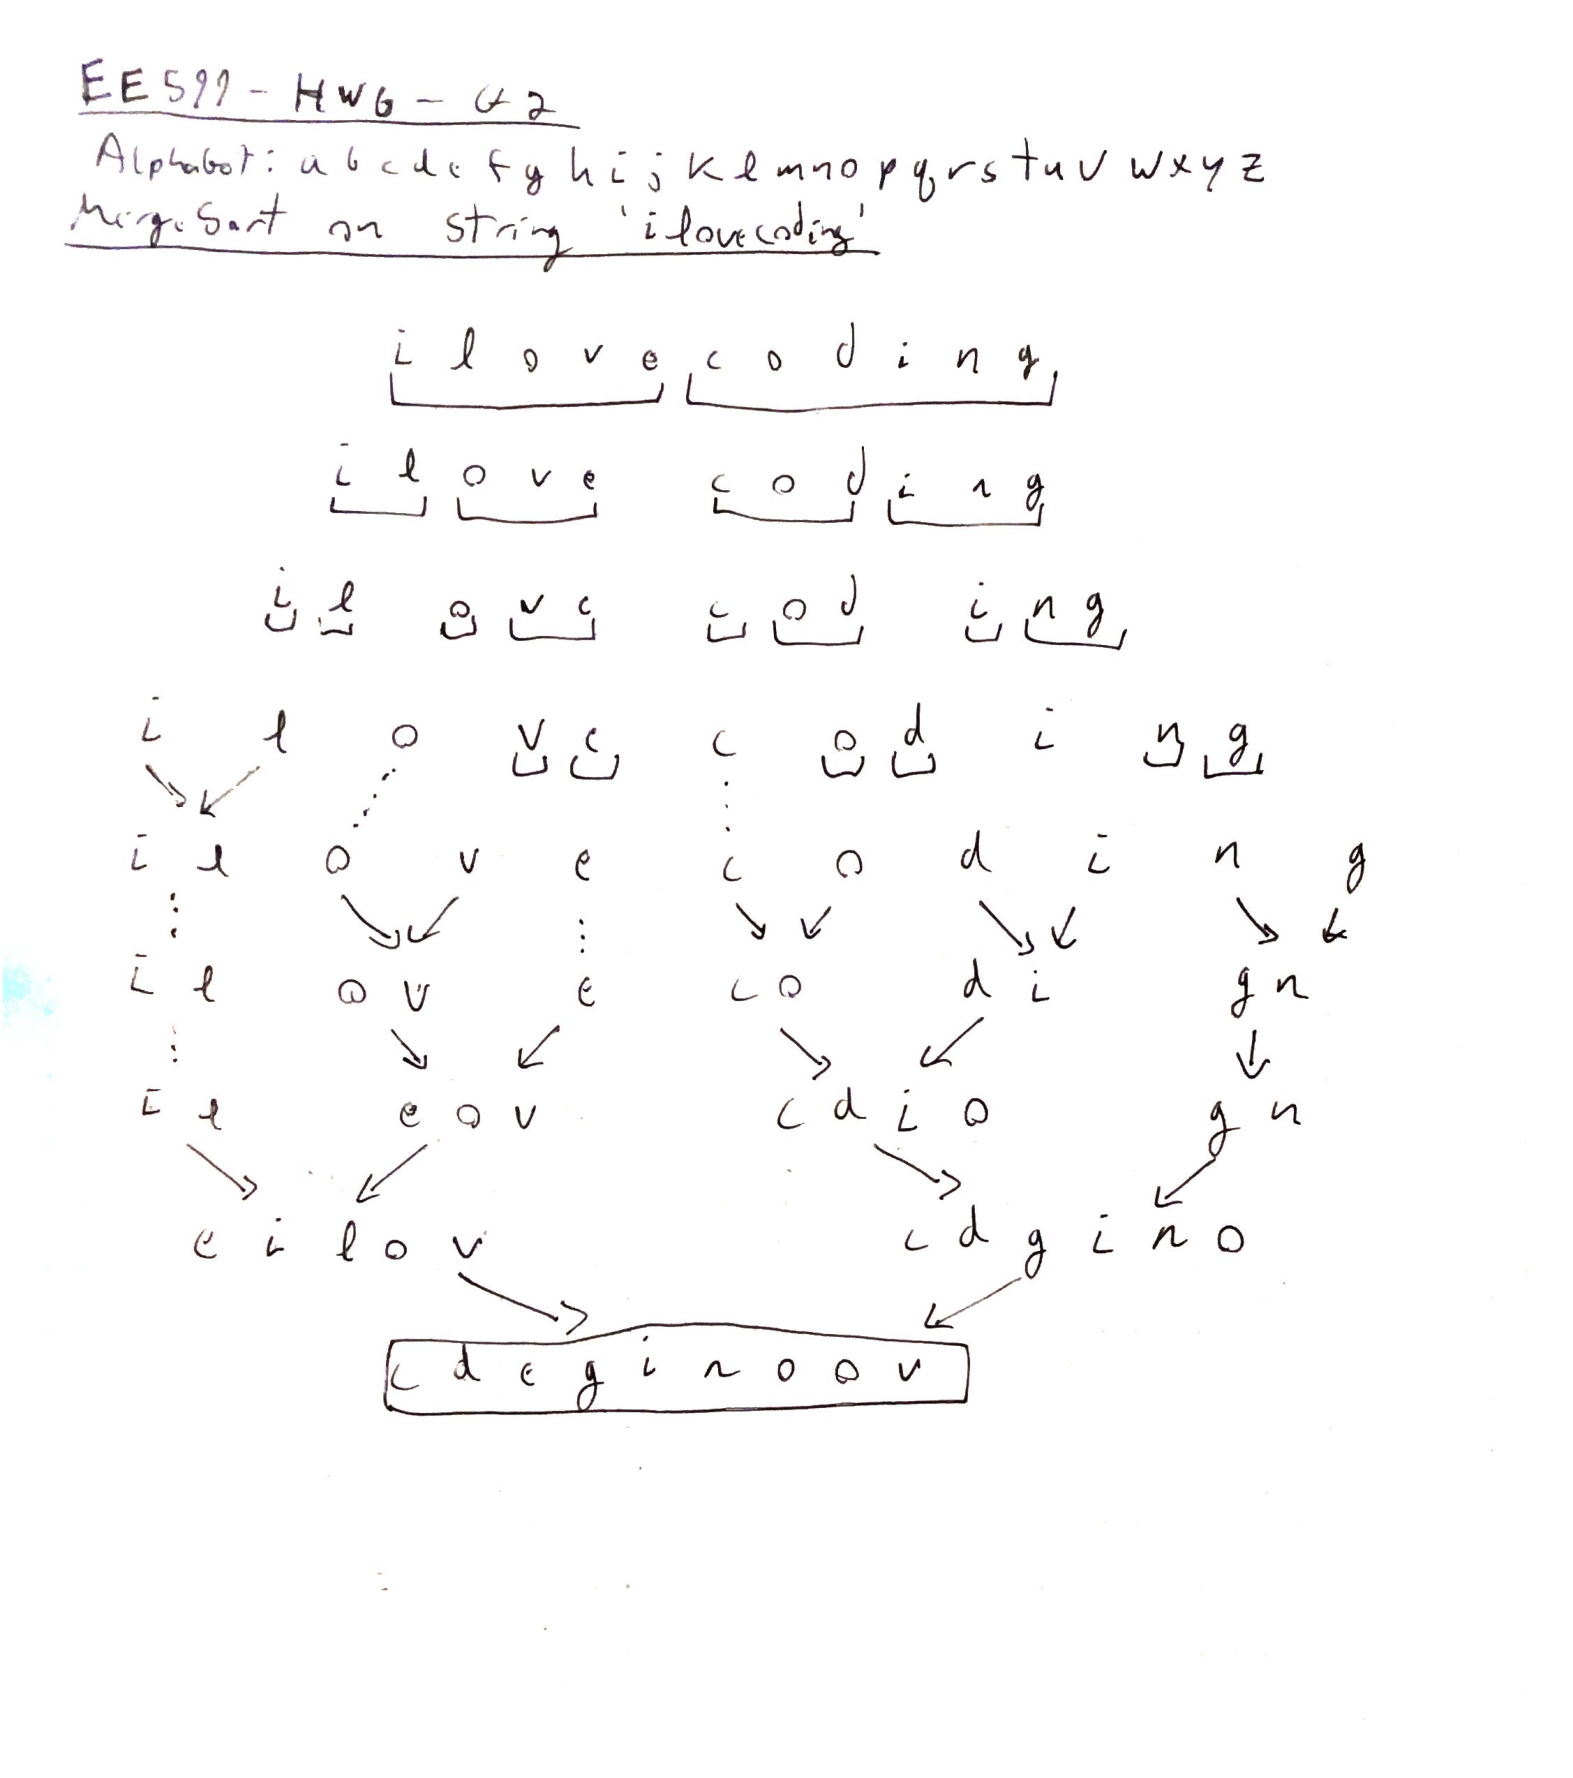 EE599 - HW6 - Q2
Alphabet: a b c d e f g h i j k l m n o p q r s t u v w x y z
MergeSort on string 'ilovecoding'
i l o v e c o d i n g
i l o v e c o d i n g
i l o v e c o d i n g
i l o v e c o d i n g
i l o v e c o d i n g
i l o v e c o d i g n
i l e o v c d i o g n
e i l o v c d g i n o
c d e g i n o o v